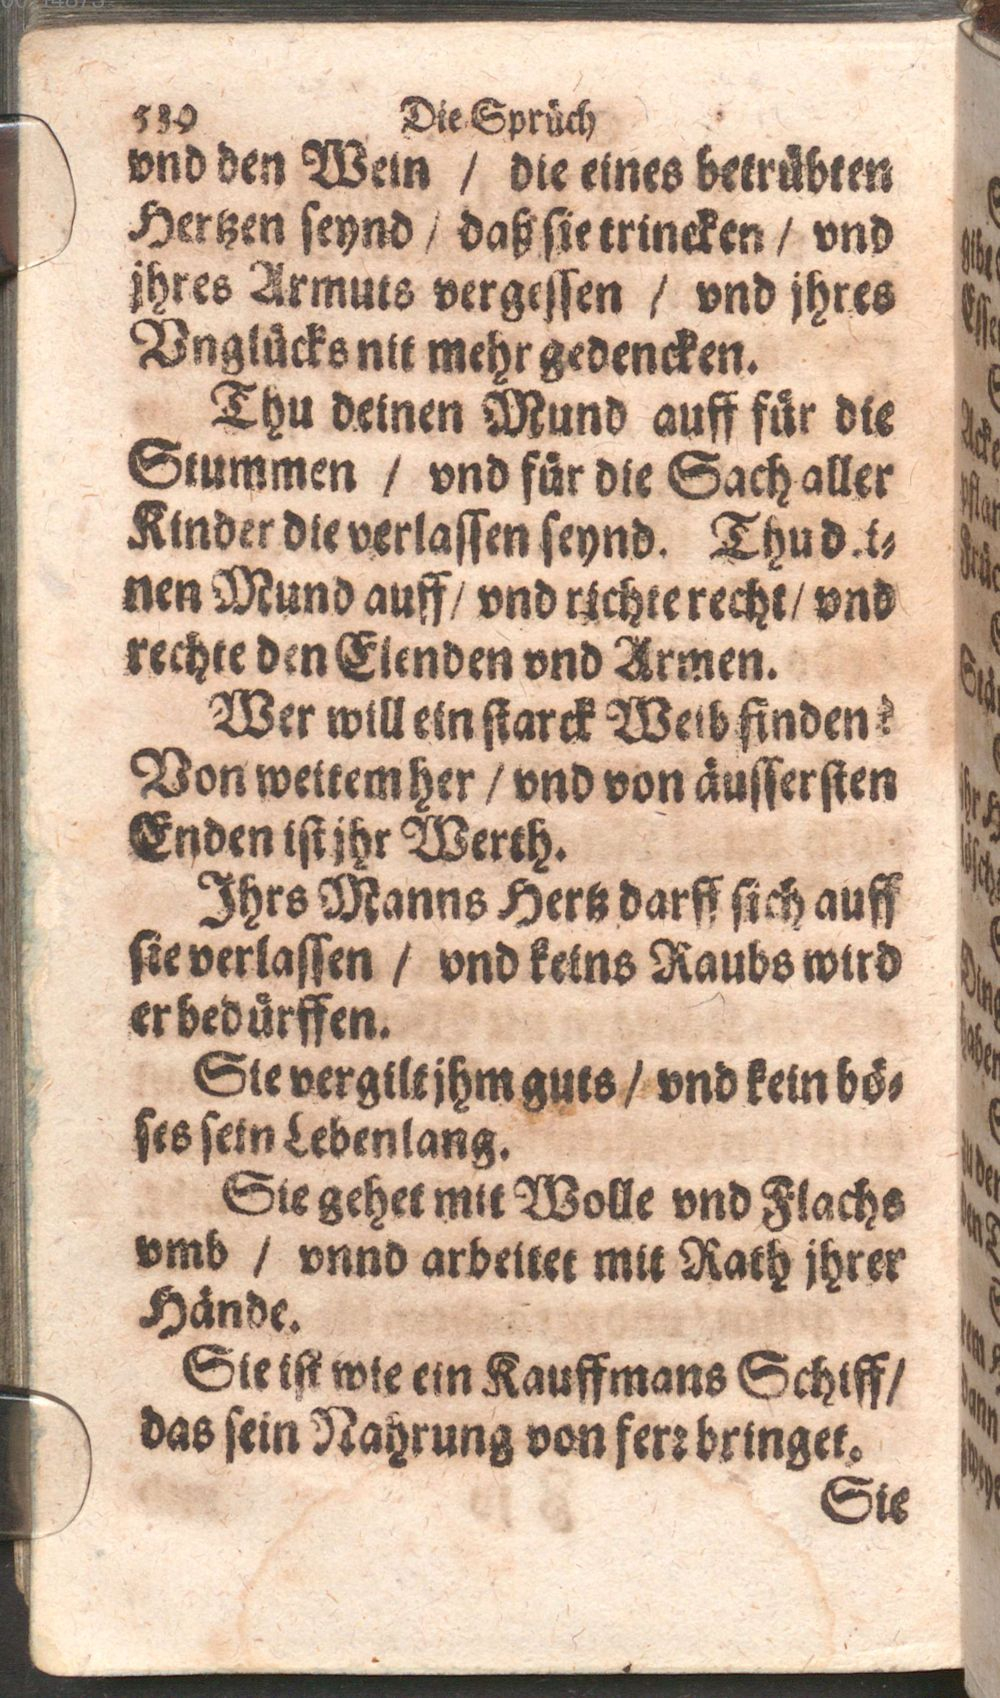 530 Die Sprüch
vnd den Wein / die eines betrübten
Hertzen seynd / daß sie trincken / vnd
jhres Armuts vergessen / vnd jhres
Vnglücks nit mehr gedencken.
Thu deinen Mund auff für die
Stummen / vnd für die Sach aller
Kinder die verlassen seynd. Thu d.i-
nen Mund auff / vnd richte recht / vnd
rechte den Elenden vnd Armen.
Wer will ein starck Weib finden?
Von weitem her / vnd von äussersten
Enden ist jhr Werth.
Ihrs Manns Hertz darff sich auff
sie verlassen / vnd keins Raubs wird
er bedürffen.
Sie vergilt jhm guts / vnd kein bö-
ses sein Lebenlang.
Sie gehet mit Wolle vnd Flachs
vmb / vnnd arbeitet mit Rath jhrer
Hände.
Sie ist wie ein Kauffmans Schiff /
das sein Nahrung von ferr bringet.
Sie